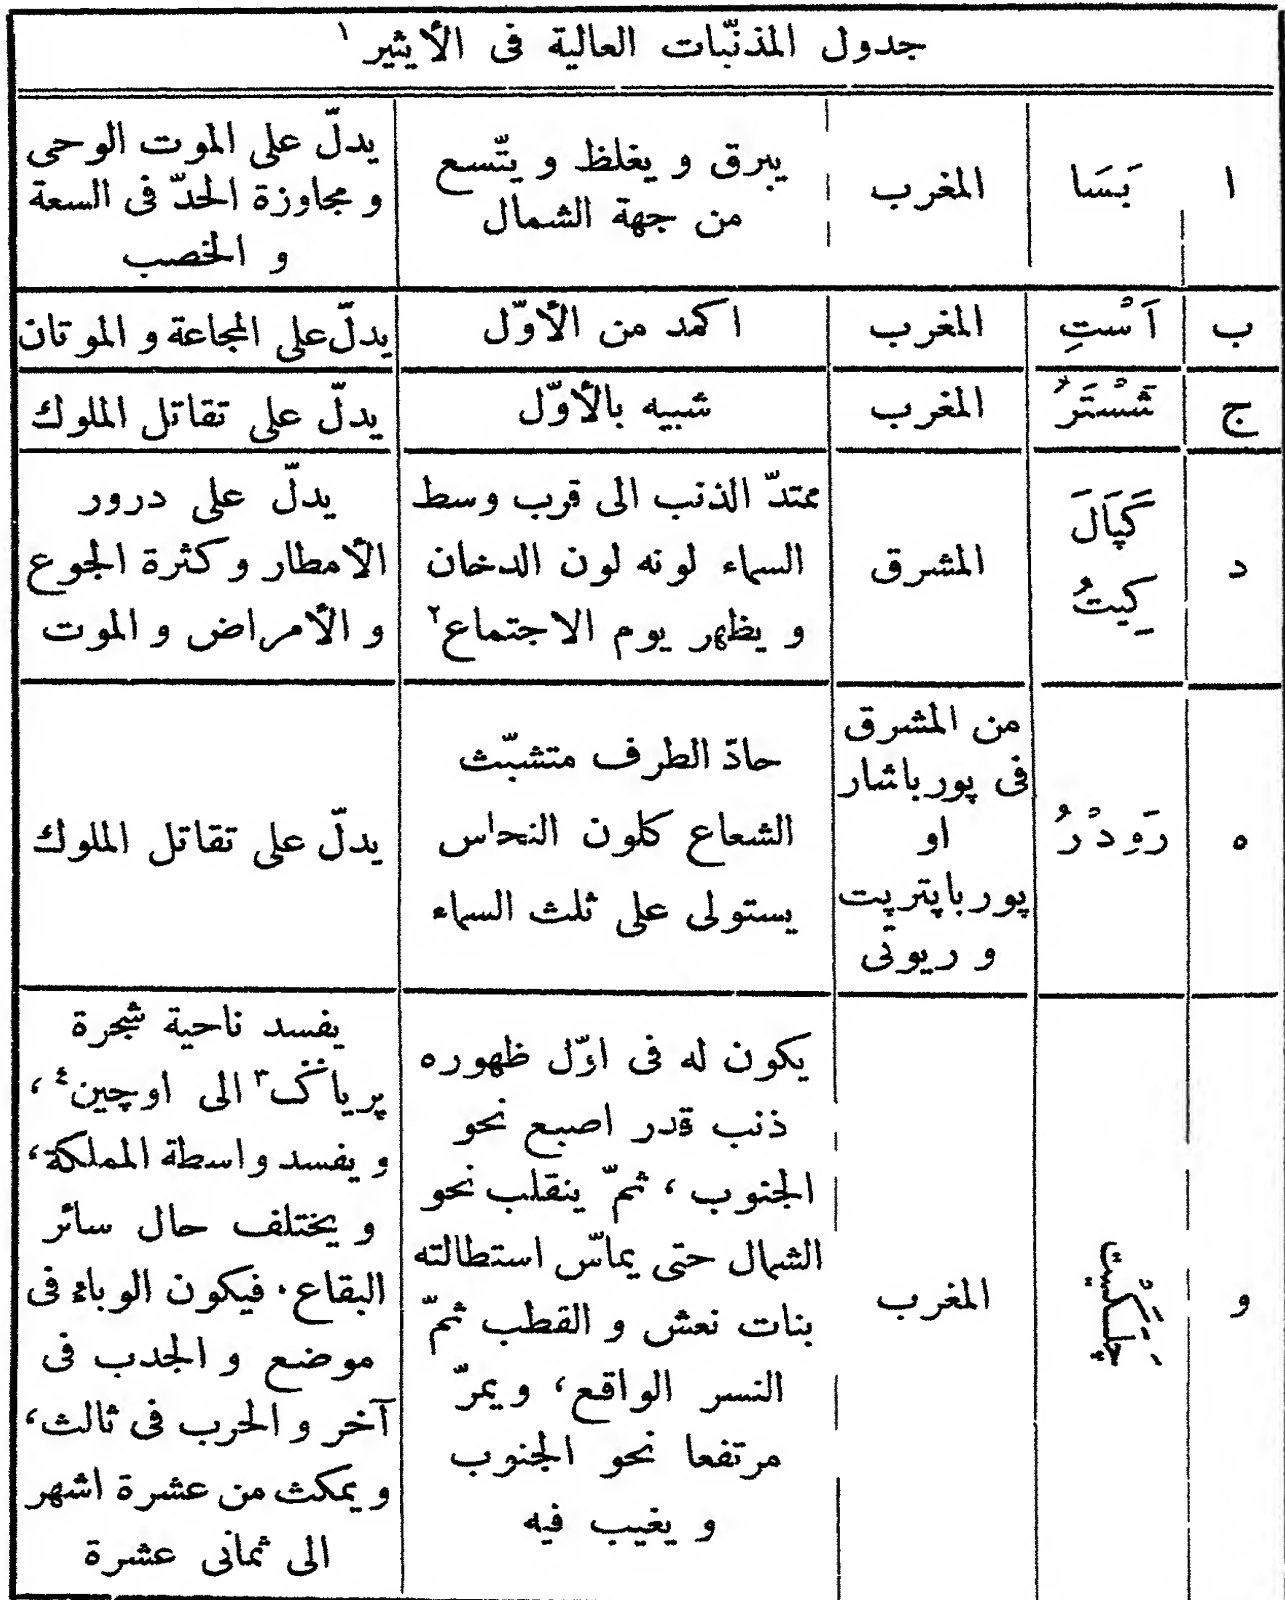 جدول المذنّبات العالية فى الأيثير ١
ا
بَسَا
المغرب
يبرق و يغلظ و يتّسع
من جهة الشمال
يدلّ على الموت الوحى
و مجاوزة الحدّ فى السعة
و الخصب
ب
اَسْتِ
المغرب
اكمد من الأوّل
يدلّ على المجاعة و الموتان
ج
شَسْتَرُ
المغرب
شبيه بالأوّل
يدلّ على تقاتل الملوك
د
كَپَالَ
كِيتُ
المشرق
ممتدّ الذنب الى قرب وسط
السماء لونه لون الدخان
و يظهر يوم الاجتماع ٢
يدلّ على درور
الأمطار و كثرة الجوع
و الأمراض و الموت
ه
رَودْرُ
من المشرق
فى پورباشار
او
پورباپترپت
و ريوتى
حادّ الطرف متشبّث
الشعاع كلون النحاس
يستولى على ثلث السماء
يدلّ على تقاتل الملوك
و
المغرب
يكون له فى اوّل ظهوره
ذنب قدر اصبع نحو
الجنوب ، ثمّ ينقلب نحو
الشمال حتى يماسّ استطالته
بنات نعش و القطب ثمّ
النسر الواقع ، و يمرّ
مرتفعا نحو الجنوب
و يغيب فيه
يفسد ناحية شجرة
پرياگ ٣ الى اوچين ٤ ،
و يفسد واسطة المملكة ،
و يختلف حال سائر
البقاع . فيكون الوباء فى
موضع و الجدب فى
آخر و الحرب فى ثالث ،
و يمكث من عشرة اشهر
الى ثمانى عشرة